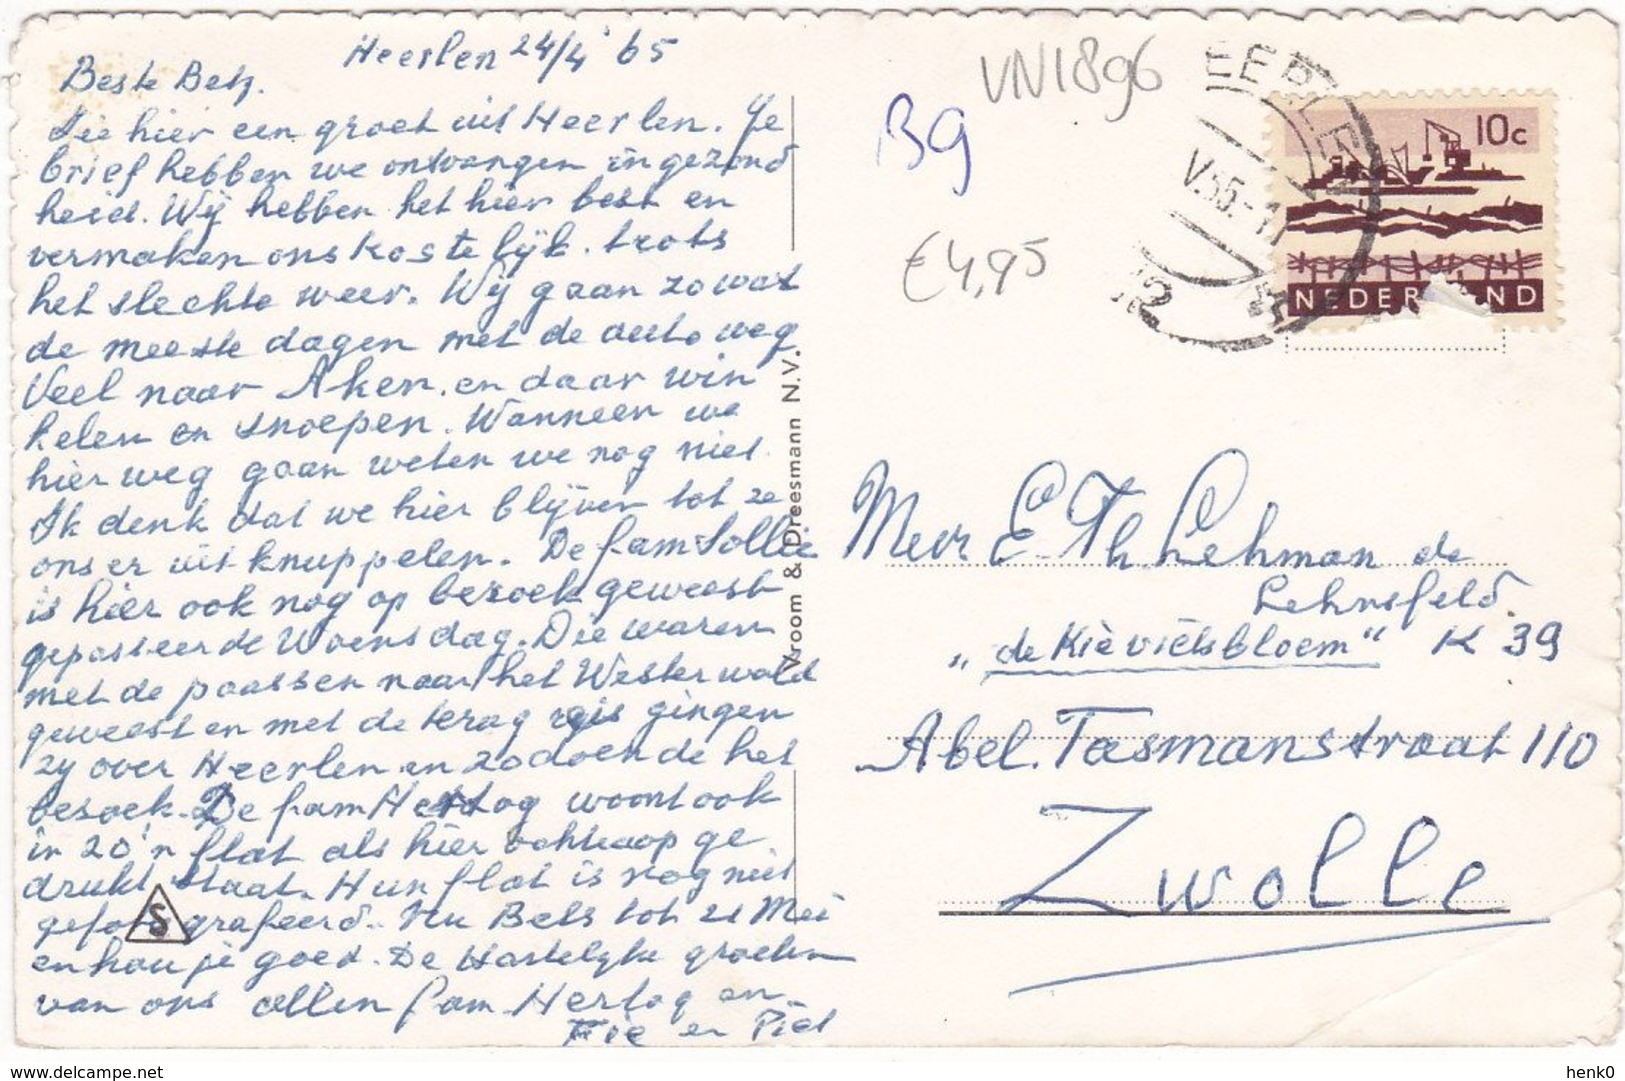 Heerlen 24/4 '65
Beste Bets.
Zie hier een groet uit Heerlen. Je
brief hebben we ontvangen in gezond
heid. Wij hebben het hier best en
vermaken ons kostelijk. trots
het slechte weer. Wij gaan zowat
de meeste dagen met de auto weg
Veel naar Aken. en daar win
kelen en snoepen. Wanneer we
hier weg gaan weten we nog niet.
Ik denk dat we hier blijven tot ze
ons er uit knuppelen. De fam
is hier ook nog op bezoek geweest
gepasseerde Woensdag. Die waren
met de paassen naar het Westerwald
geweest en met de terug reis gingen
zy over Heerlen en zodoende het
bezoek. De fam Hertog woont ook
in zo'n flat als hier achterop ge
drukt staat. Hun flat is nog niet
gefotografeerd. Nu Bets tot 21 Mei
en hou je goed. De Hartelyke groeten
van ons allen fam Hertog en
Fie en Piet
S
Vroom & Dreesmann N.V.
BG
VN1896
€4,95
HEERLEN
V.55.-1
12
10c
NEDERLAND
Mevr E Th Lehman de
Lehnsfeld.
„de Kievietsbloem" K 39
Abel. Tasmanstraat 110
Zwolle
delcampe.net
henk0